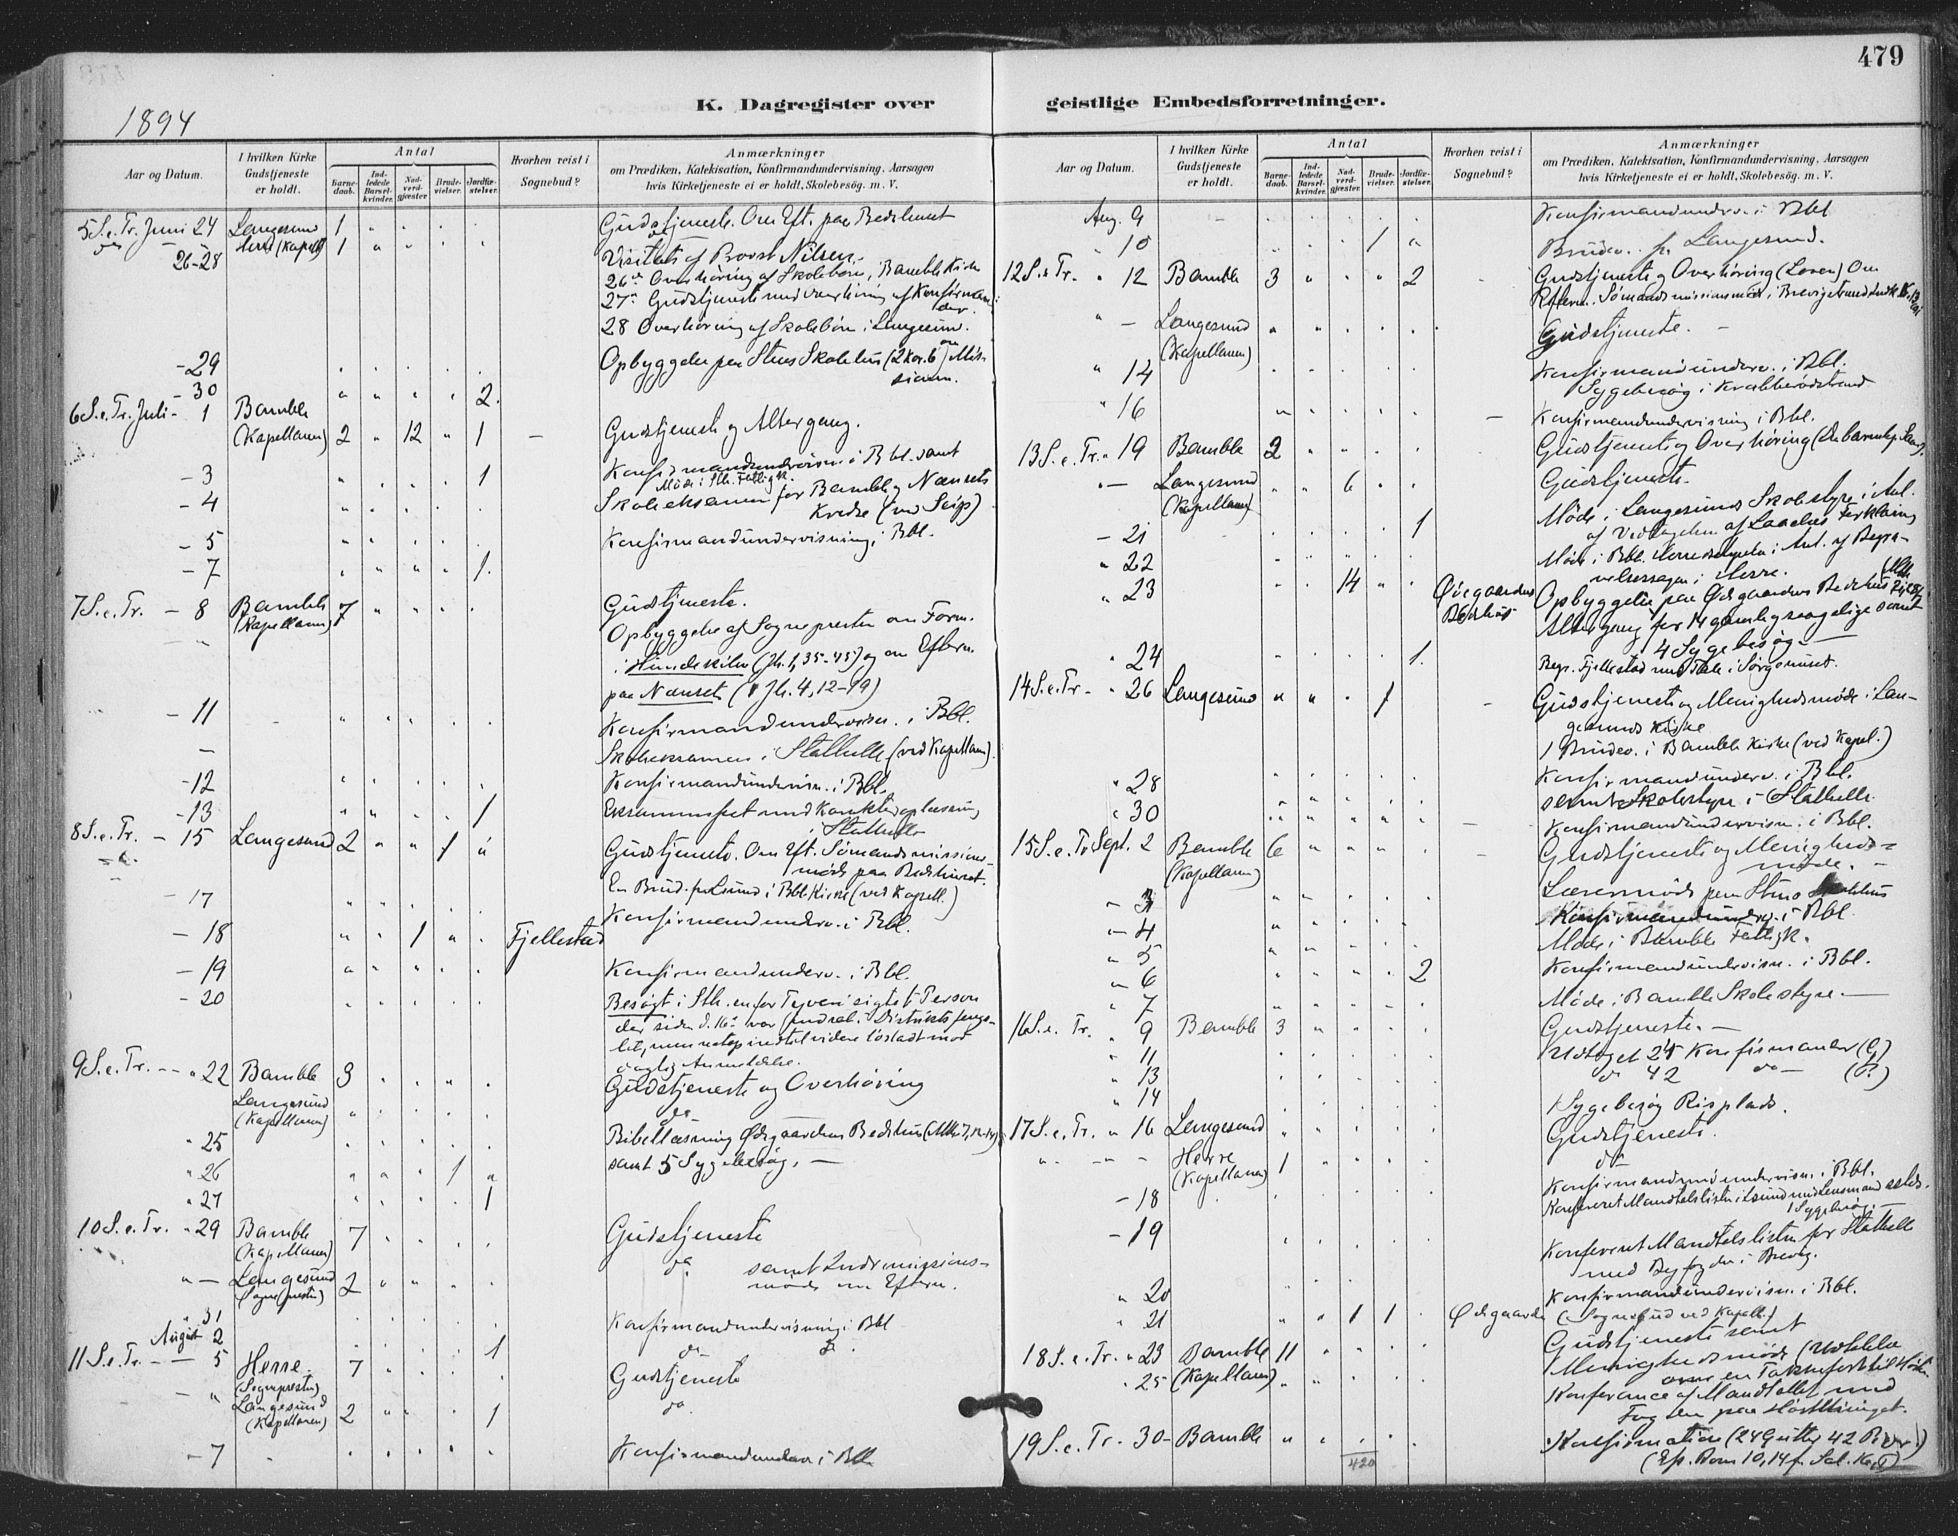 479
1894
K. Dagregister over geistlige Embedsforretninger.
Aar og Datum.
I hvilken Kirke Gudstjeneste er holdt.
Antal
Barnedaab.
Indledede Barselkvinder.
Nadverdgjæster.
Brudevielser.
Jordfæstelser.
Hvorhen reist i Sognebud?
Anmærkninger
om Prædiken, Katekisation, Konfirmandundervisning, Aarsagen
hvis Kirketjeneste ei er holdt, Skolebesøg. m. V.
5 S. e. Tr. Juni 24 Langesund 1 Gudstjeneste. Om Eft. paa Bedehuset
do Herre (Kapell) 1 do
26-28 Visitats af Provst Nilsen.
26de Overhøring af Skolebørn i Bamble Kirke
27de Gudstjeneste med Overhøring af Konfirmander.
28 Overhøring af Skolebørn i Langesund.
-29 Opbyggelse paa Skolehus (2 Kor. 6) om Missionen.
-30 2.
6 S. e. Tr. Juli - 1 Bamble
(Kapellanen) 2 12 1 - Gudstjeneste og Altergang.
-3 1 Konfirmandundervisn. i Bbl. samt
Møde i Sth. Fattigk.
-4 Skoleeksamen for Bamble og Nænsets
Kredse (ved Seip)
-5 Konfirmandundervisning i Bbl.
-7 1.
7 S. e. Tr. - 8 Bamble 7 Gudstjeneste.
(Kapellanen)
Opbyggelse af Sognepresten om Form.
i Hundekilen (Jh. 1, 35-43) og om Eftern.
paa Nænset (Jh. 4, 12-19)
-11 Konfirmandundervisn. i Bbl.
- Skoleeksamen i Stathelle (ved Kapellanen).
-12 Konfirmandundervisn. i Bbl.
-13 1 Eksamensfest med Karakteroplæsning
i Stathelle
8 S. e. Tr. - 15 Langesund 2 1 Gudstjeneste. Om Eft. Sømandsmissions-
møde paa Bedehuset.
En Brud. fr. Lsund i Bbl. Kirke (ved Kapell.)
-17 Konfirmandunderv. i Bbl.
-18 1 Fjellestad
-19 Konfirmandunderv. i Bbl.
-20 Besøgt i Sth. en for Tyveri sigtet Person
der siden d. 16de var i Distriktsfængs-
let, men netop indtil videre løsladt mod
daglig Anmeldelse.
9 S. e. Tr. - 22 Bamble 3 Gudstjeneste og Overhøring
Langesund do
(Kapellanen)
25 Bibellæsning Ødegaardens Bedehus
26 1 samt 5 Sygebesøg. -
27 1
10 S. e. Tr. 29 Bamble 7 Gudstjeneste
(Kapellanen)
- Langesund 2 do samt Indremissions-
(Sognepresten) møde om Eftern.
31 Konfirmandundervisning i Bbl
August 2 1 do
11 S. e. Tr. - 5 Herre 7 Gudstjeneste
(Sognepresten)
Langesund 2 1 do.
(Kapellanen)
-7 Konfirmandunderv i Bbl
Aug. 9 - Konfirmandunderv. i Bbl
10 1 Brudev. fr. Langesund.
12 S. e. Tr. 12 Bamble 3 2 Gudstjeneste og Overhøring (Loven) Om
Eftern. Sømandsmissionsmøde i
- Langesund Gudstjeneste. -
(Kapellanen)
14 Konfirmandunderv. i Bbl.
Sygebesøg i Krabberødstrand
16 - Konfirmandundervisning i Bbl.
13 S. e. Tr. 19 Bamble 2 Gudstjeneste og Overhøring
- Langesund 6 Gudstjeneste.
(Kapellanen)
-21 1 Møde i Langesunds Skolestyre i Anl.
af Vedtagelsen af
22 Møde i Bbl. Herredsstyrelse i Anl. af Begra-
velsessagen i Herre.
23 14 Ødegaardens Bedehus Opbyggelse paa Ødegaardens Bedehus
Altergang for 14 samt
4 Sygebesøg -
24 1. Begr. Fjellestad med Tale i Sørgehuset.
14 S. e. Tr. 26 Langesund 1 - Gudstjeneste og Menighedsmøde i Lan-
gesunds Kirke
1 Brudev. i Bamble Kirke (ved Kapel.)
28 Konfirmandunderv. i Bbl.
samt Skolestyre i Stathelle.
30 - Konfirmandundervisn. i Bbl.
15 S. e. Tr Sept. 2 Bamble 6 - Gudstjeneste og Menigheds-
(Kapellanen) møde. -
3 Lærermøde paa Skolehus
-4 Konfirmandunderv. i Bbl.
5 Møde i Bamble Fattigk.
6 2 Konfirmandundervisn. i Bbl.
7 Møde i Bamble Skolestyre. -
16 S. e. Tr. 9 Bamble 3 Gudstjeneste. -
11 Udtaget 24 Konfirmander (G)
13 do 42 do - (P.)
14 1 Sygebesøg Risplads.
17 S. e. Tr. 16 Langesund Gudstjeneste.
Herre 1 do
(Kapellanen)
-18 Konfirmandundervisn. i Bbl.
Konfereret Mandtalslisten i Lsund med Lensmand
1 Sygebesøg. -
-19 Konfereret Mandtalslisten for Stathelle
med Byfogden i Brevig.
20 Konfirmandundervisn. i Bbl.
21 1 1 Ødegaarden (Sognebud ved Kapell.)
18 S. e. Tr. 23 Bamble 11 Gudstjeneste samt
25 (Kapellanen) Menighedsmøde
Konferance af Mandtallet med
Fogden paa
19 S. e. Tr. 30 - Bamble Konfirmation (24 Gutter 42 Piger)
420